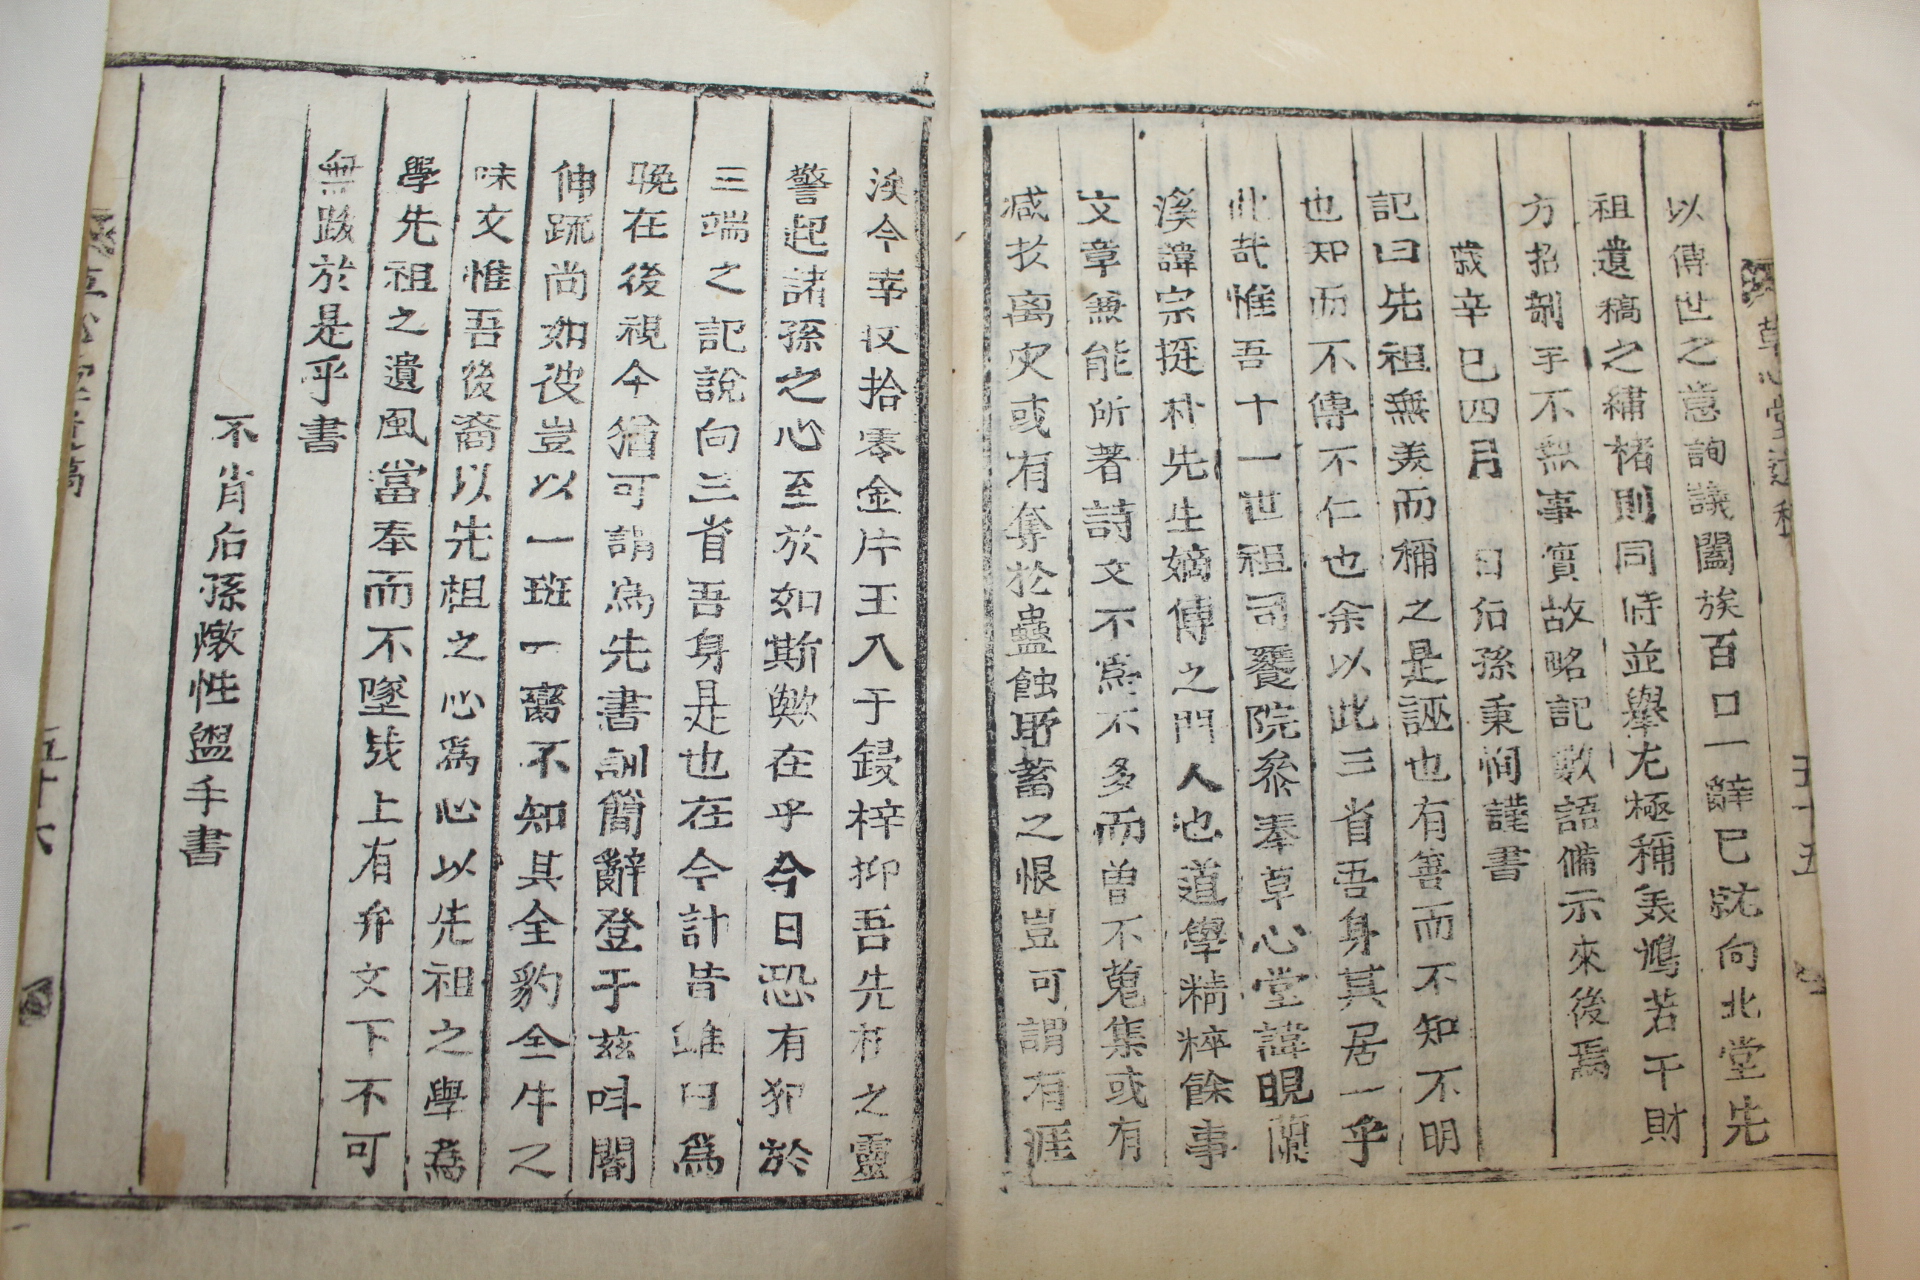 草心堂遺稿 五十五
以傳世之意詢議闔族百口一辭已訦向北堂先
祖遺稿之繡楮則同時並擧尤極稱美鴻若干財
方招剞手不無事實故略記數語備示來後焉
歲辛巳四月 日后孫秉憪謹書
記曰先祖無美而稱之是誣也有善而不知不明
也知而不傳不仁也余以此三省吾身其居一乎
此哉惟吾十一世祖司饔院參奉草心堂諱晛蘭
溪諱宗挺朴先生嫡傳之門人也道學精粹餘事
文章兼能所著詩文不爲不多而曾不蒐集或有
烕於离灾或有奪於蠱蝕耶蓄之恨豈可謂有涯
涘今幸收拾零金片玉入于鋟梓抑吾先祖之靈
警起諸孫之心至於如斯歟在乎今日恐有犯於
三端之記說向三省吾身是也在今計昔雖曰爲
晩在後視今猶可謂爲先書訓簡辭登于玆叫閽
伸疏尙如彼豈以一班一臠不知其全豹全牛之
味文惟吾後裔以先祖之心爲心以先祖之學爲
學先祖之遺風當奉而不墜哉上有弁文下不可
無跋於是乎書
不肖后孫燉性盥手書
五十六